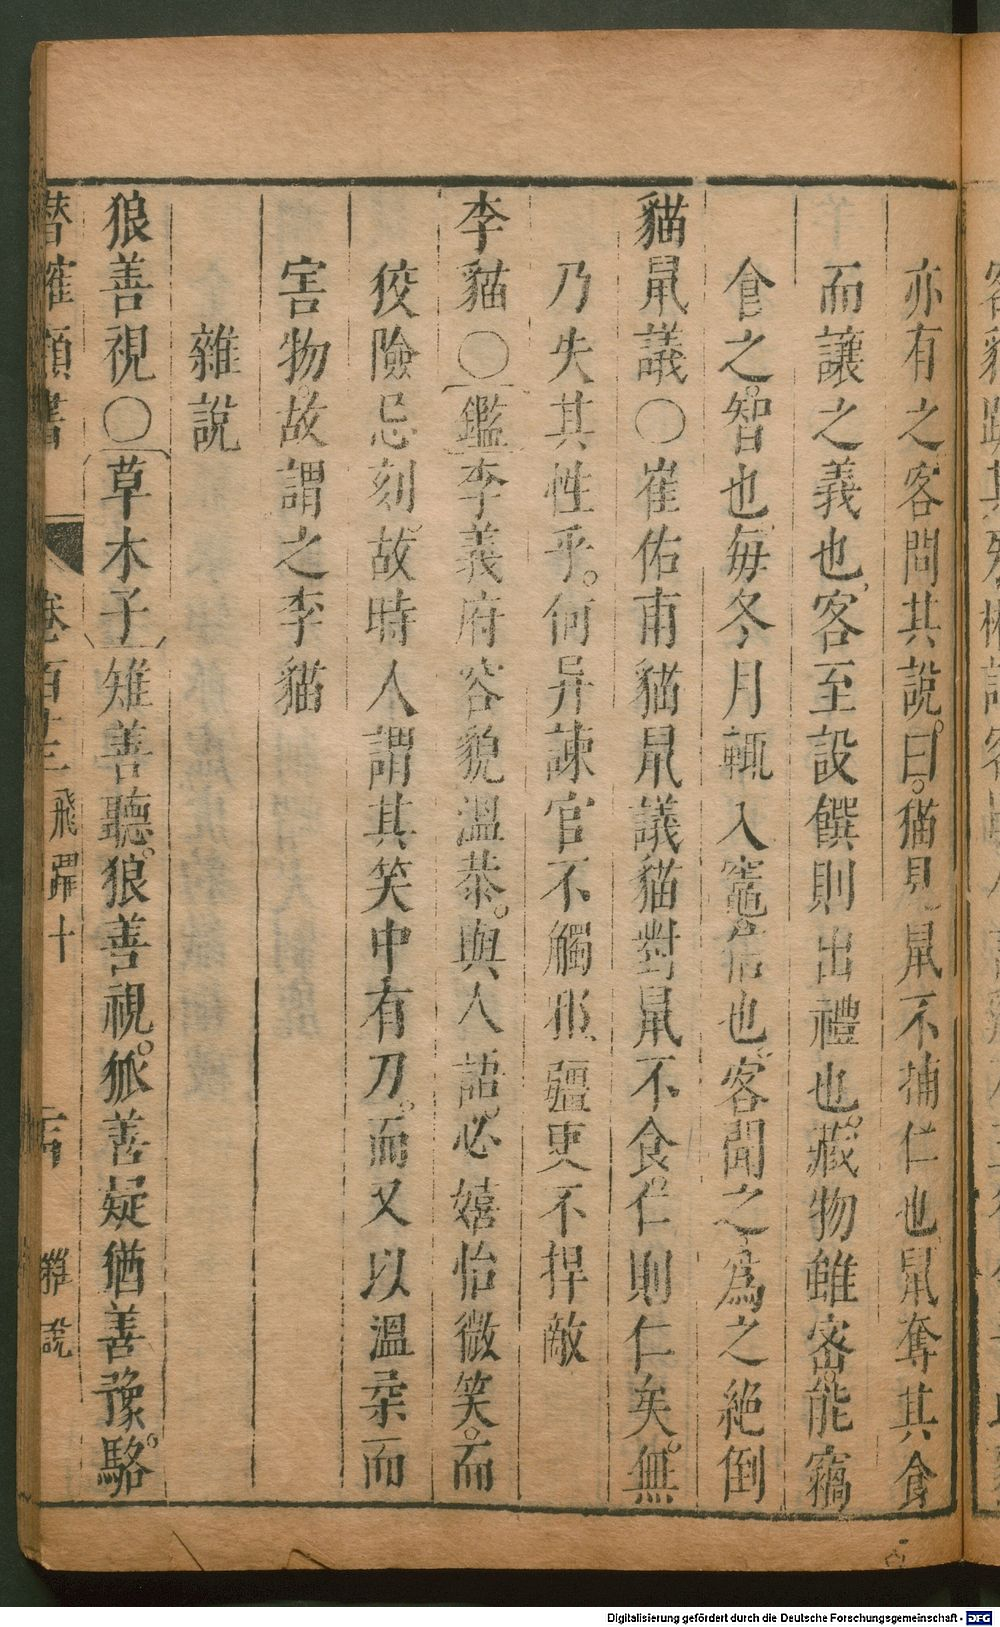 亦有之客問其說。曰。猫見鼠不捕仁也鼠奪其食
而讓之義也、客至設饌則出禮也。藏物雖密。能竊
食之。智也、每冬月輒入竈。信也。客聞之、爲之絶倒
貓鼠議〇崔佑甫貓鼠議貓對鼠不食仁則仁矣。無
乃失其性乎。何异諫官不觸邪、疆吏不捍敵
李貓〇〔鑑〕李義府容貌溫恭。與人語。必嬉怡微笑。而
狡險忌刻。故時人謂其笑中有刀。而又以溫柔而
害物。故謂之李貓
雜說
狼善視〇〔草木子〕雉善聽。狼善視。狐善疑猶善豫。駱
潛確類書
卷百十三飛躍十
雜說
Digitalisierung gefördert durch die Deutsche Forschungsgemeinschaft - DFG